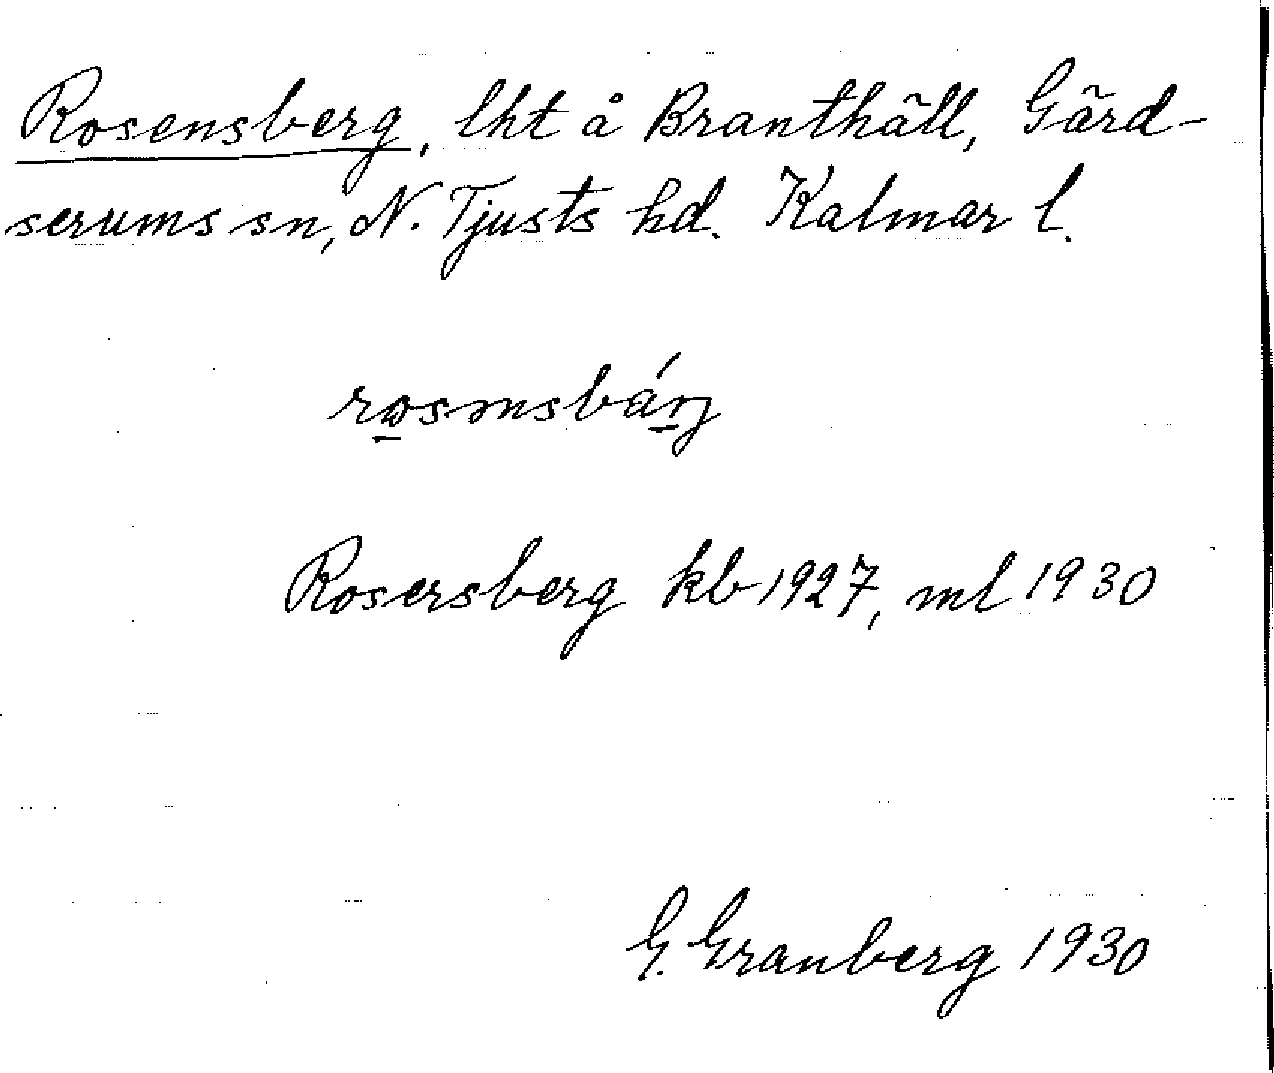 Rosensberg, lht å Branthäll, Gärd-
serums sn, N. Tjusts hd. Kalmar l.
Rosersberg kb 1927, ml 1930
G. Granberg 1930